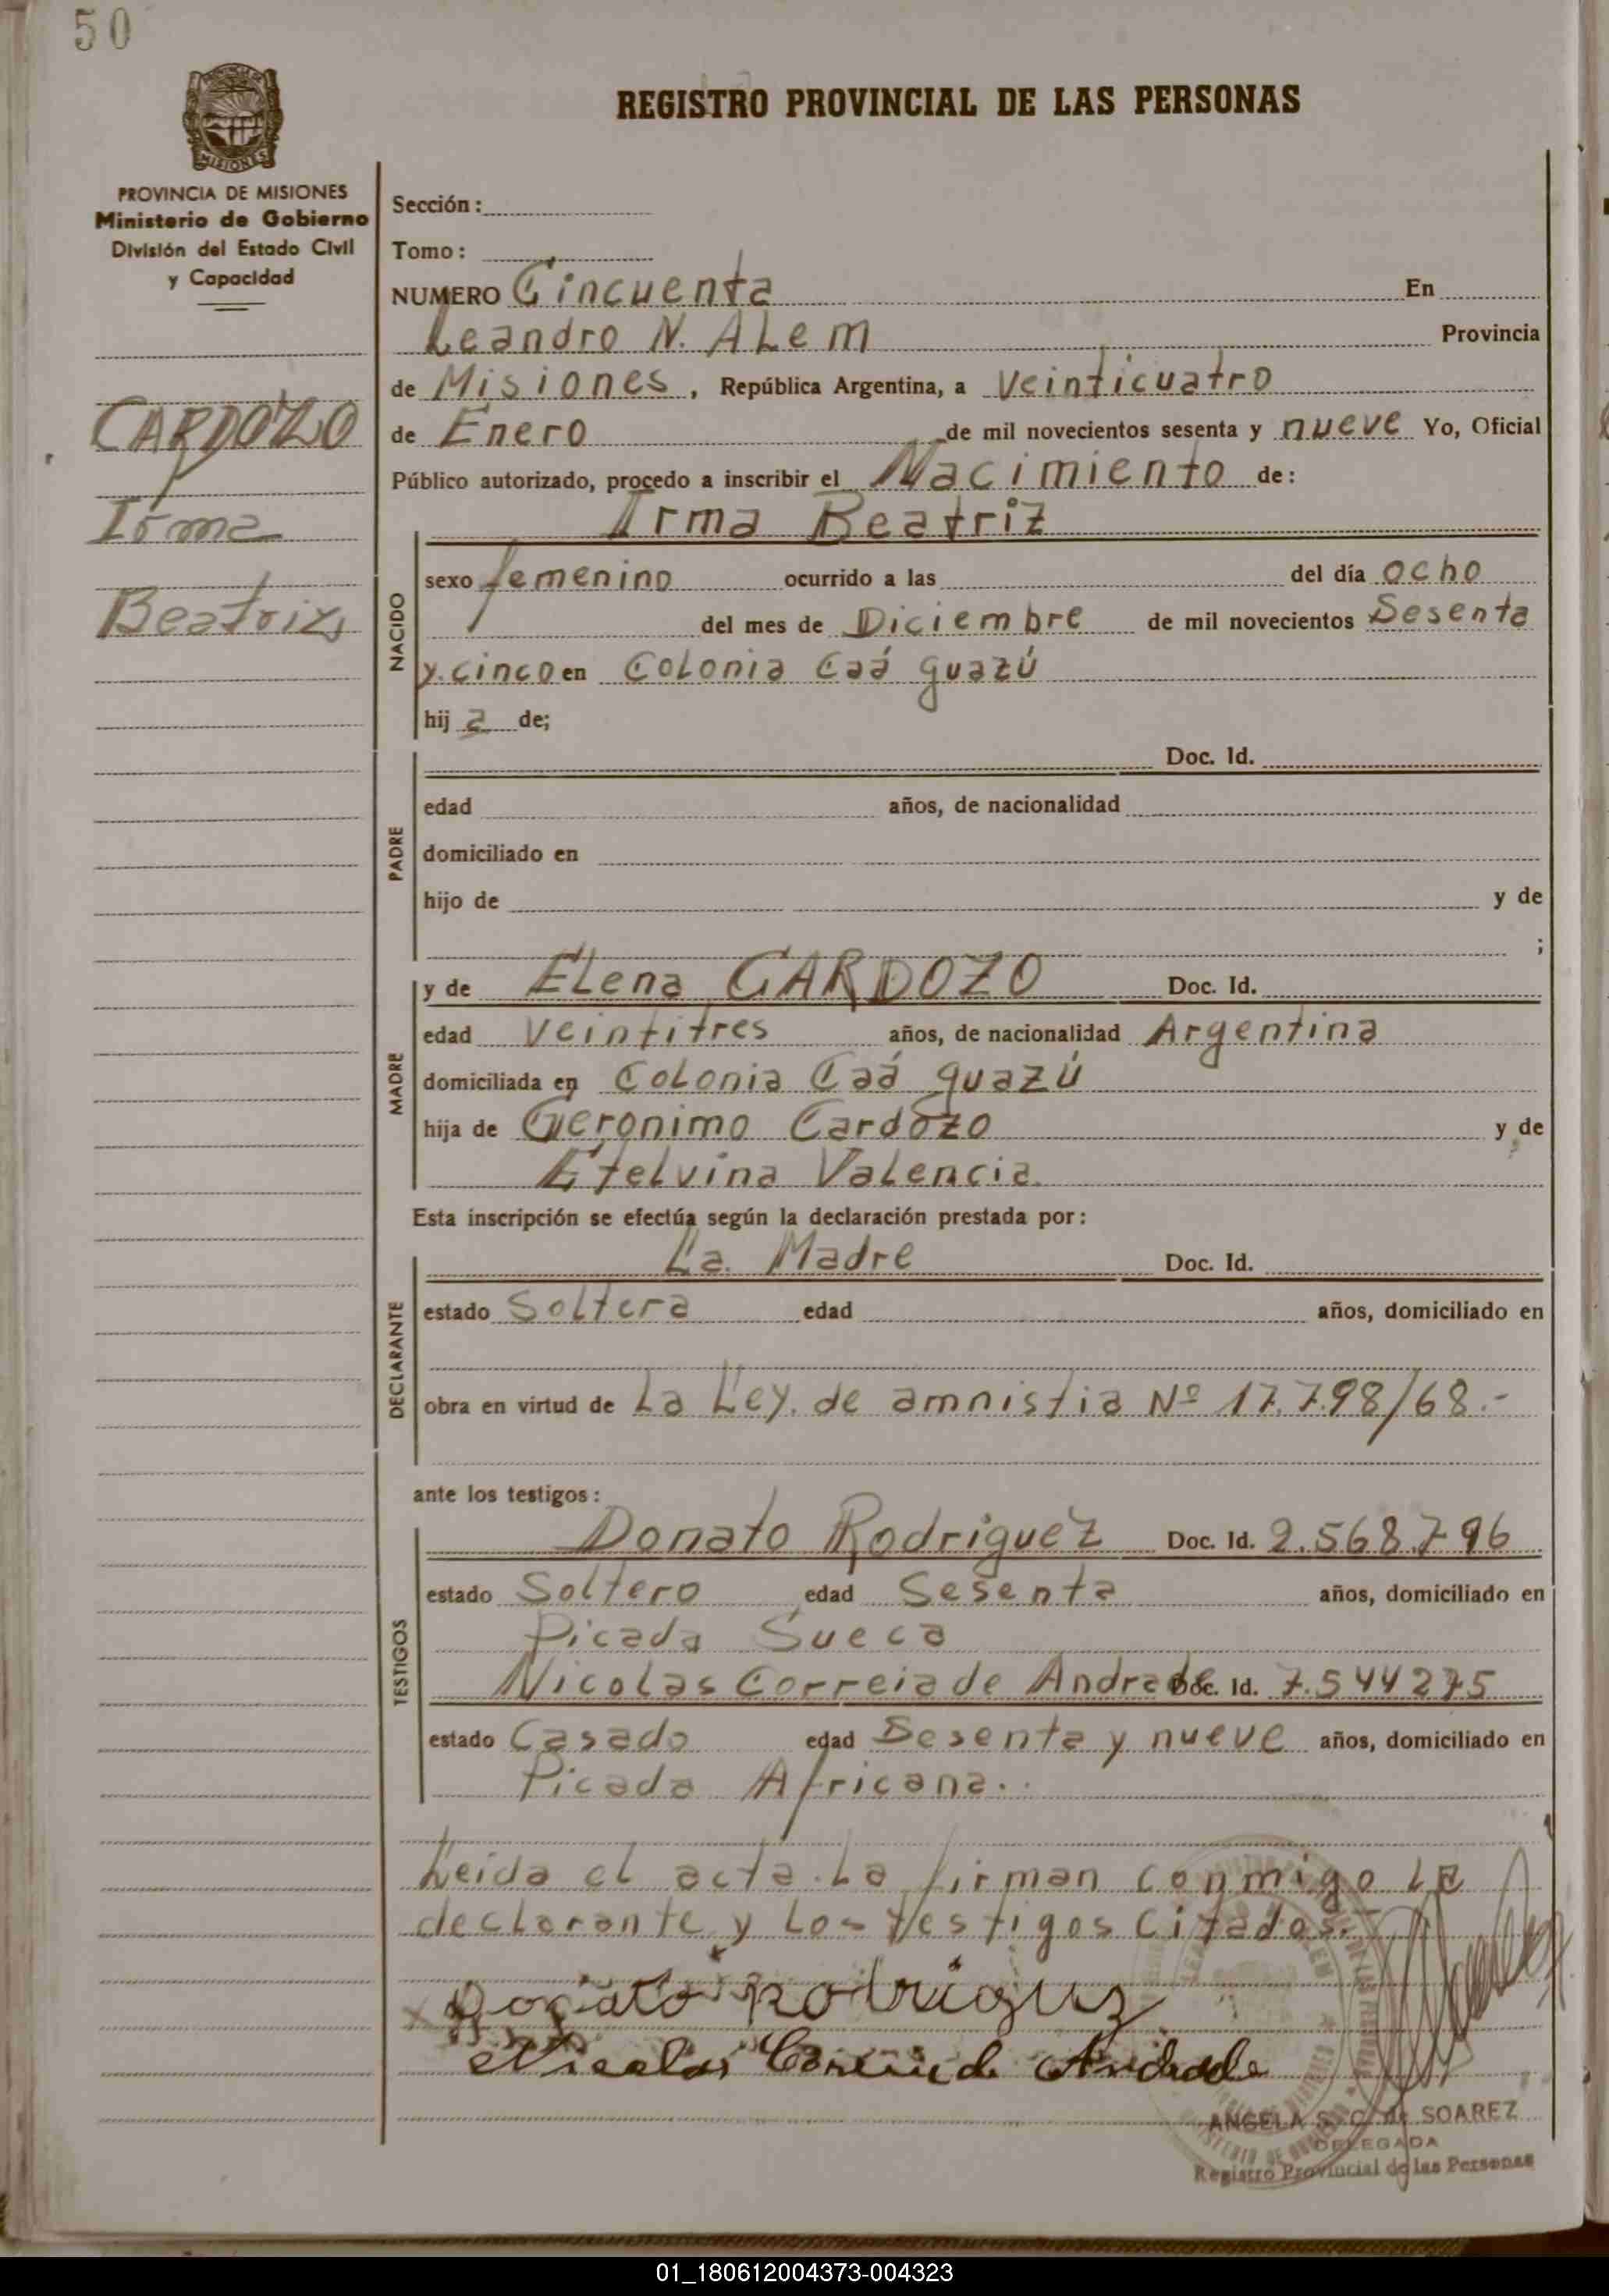 50
PROVINCIA DE MISIONES
Ministerio de Gobierno
División del Estado Civil
y Capacidad
CARDOZO
Irma
Beatriz
REGISTRO PROVINCIAL DE LAS PERSONAS
Sección:
Tomo:
NUMERO Cincuenta En
Leandro N. ALem Provincia
de Misiones, República Argentina, a veinticuatro
de Enero de mil novecientos sesenta y nueve Yo, Oficial
Público autorizado, procedo a inscribir el Nacimiento de:
Irma Beatriz
NACIDO
sexo femenino ocurrido a las del día ocho
del mes de Diciembre de mil novecientos Sesenta
y cinco en Colonia Caá guazú
hij a de;
PADRE
Doc. Id.
edad años, de nacionalidad
domiciliado en
hijo de y de
;
MADRE
y de ELena CARDOZO Doc. Id.
edad veintitres años, de nacionalidad Argentina
domiciliada en Colonia Caá guazú
hija de Geronimo Cardozo y de
Etelvina Valencia.
Esta inscripción se efectúa según la declaración prestada por:
DECLARANTE
La Madre Doc. Id.
estado Soltera edad años, domiciliado en
obra en virtud de La Ley. de amnistia Nº 17.798/68.-
ante los testigos:
TESTIGOS
Donato Rodriguez Doc. Id. 2.568.796
estado Soltero edad Sesenta años, domiciliado en
Picada Sueca
Nicolas Correia de Andrade Doc. Id. 7.544275
estado Casado edad Sesenta y nueve años, domiciliado en
Picada Africana..
Leida el acta La firman conmigo La
declarante y Los testigos citados.
Donato Rodriguz
Nicolas Correia de Andrade
ANGELA S. C. de SOAREZ
DELEGADA
Registro Provincial de las Personas
01_180612004373-004323